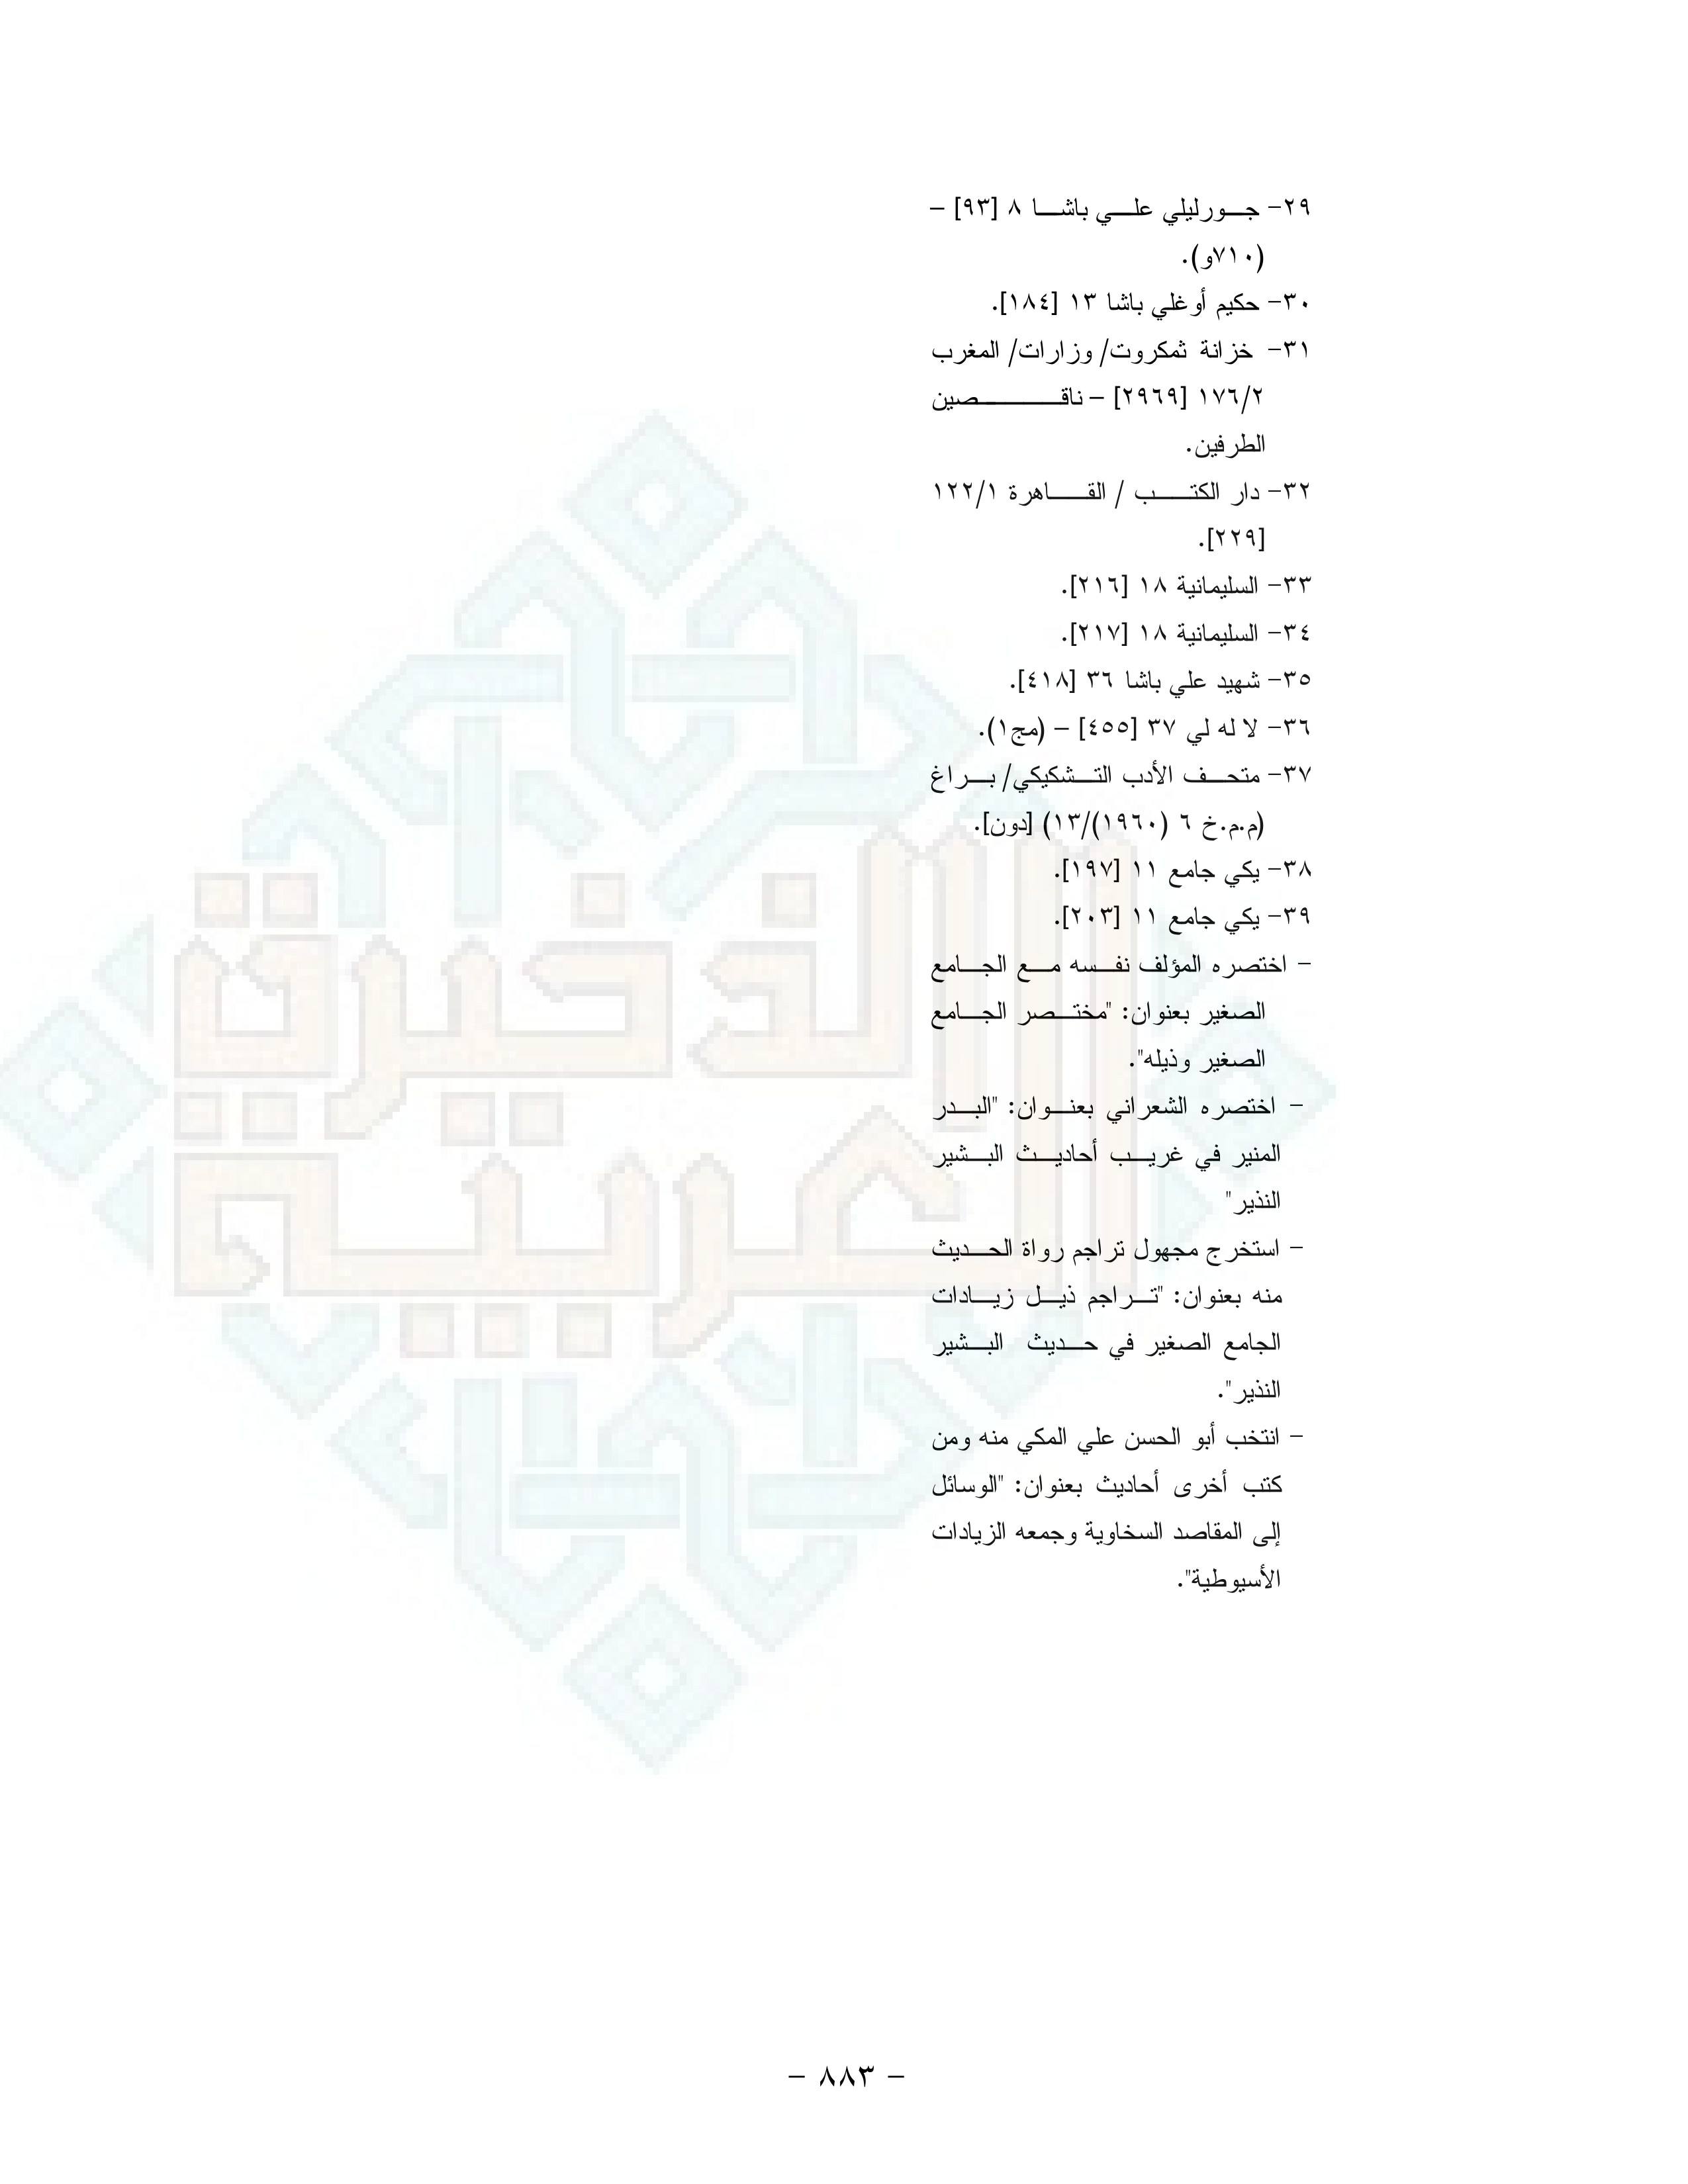 ٢٩- جورليلي علي باشا ٨ [٩٣] –
(٧١٠و).
٣٠- حكيم أوغلي باشا ١٣ [١٨٤].
٣١- خزانة ثمكروت/ وزارات/ المغرب
١٧٦/٢ [٢٩٦٩] – ناقصين
الطرفين.
٣٢- دار الكتب / القاهرة ١٢٢/١
[٢٢٩].
٣٣- السليمانية ١٨ [٢١٦].
٣٤- السليمانية ١٨ [٢١٧].
٣٥- شهيد علي باشا ٣٦ [٤١٨].
٣٦- لا له لي ٣٧ [٤٥٥] – (مج١).
٣٧- متحف الأدب التشكيكي/ براغ
(م.م.خ ٦ (١٩٦٠)/١٣) [دون].
٣٨- يكي جامع ١١ [١٩٧].
٣٩- يكي جامع ١١ [٢٠٣].
– اختصره المؤلف نفسه مع الجامع
الصغير بعنوان: "مختصر الجامع
الصغير وذيله".
– اختصره الشعراني بعنوان: "البدر
المنير في غريب أحاديث البشير
النذير"
– استخرج مجهول تراجم رواة الحديث
منه بعنوان: "تراجم ذيل زيادات
الجامع الصغير في حديث البشير
النذير".
– انتخب أبو الحسن علي المكي منه ومن
كتب أخرى أحاديث بعنوان: "الوسائل
إلى المقاصد السخاوية وجمعه الزيادات
الأسيوطية".
الذخيرة
العربية
– ٨٨٣ –